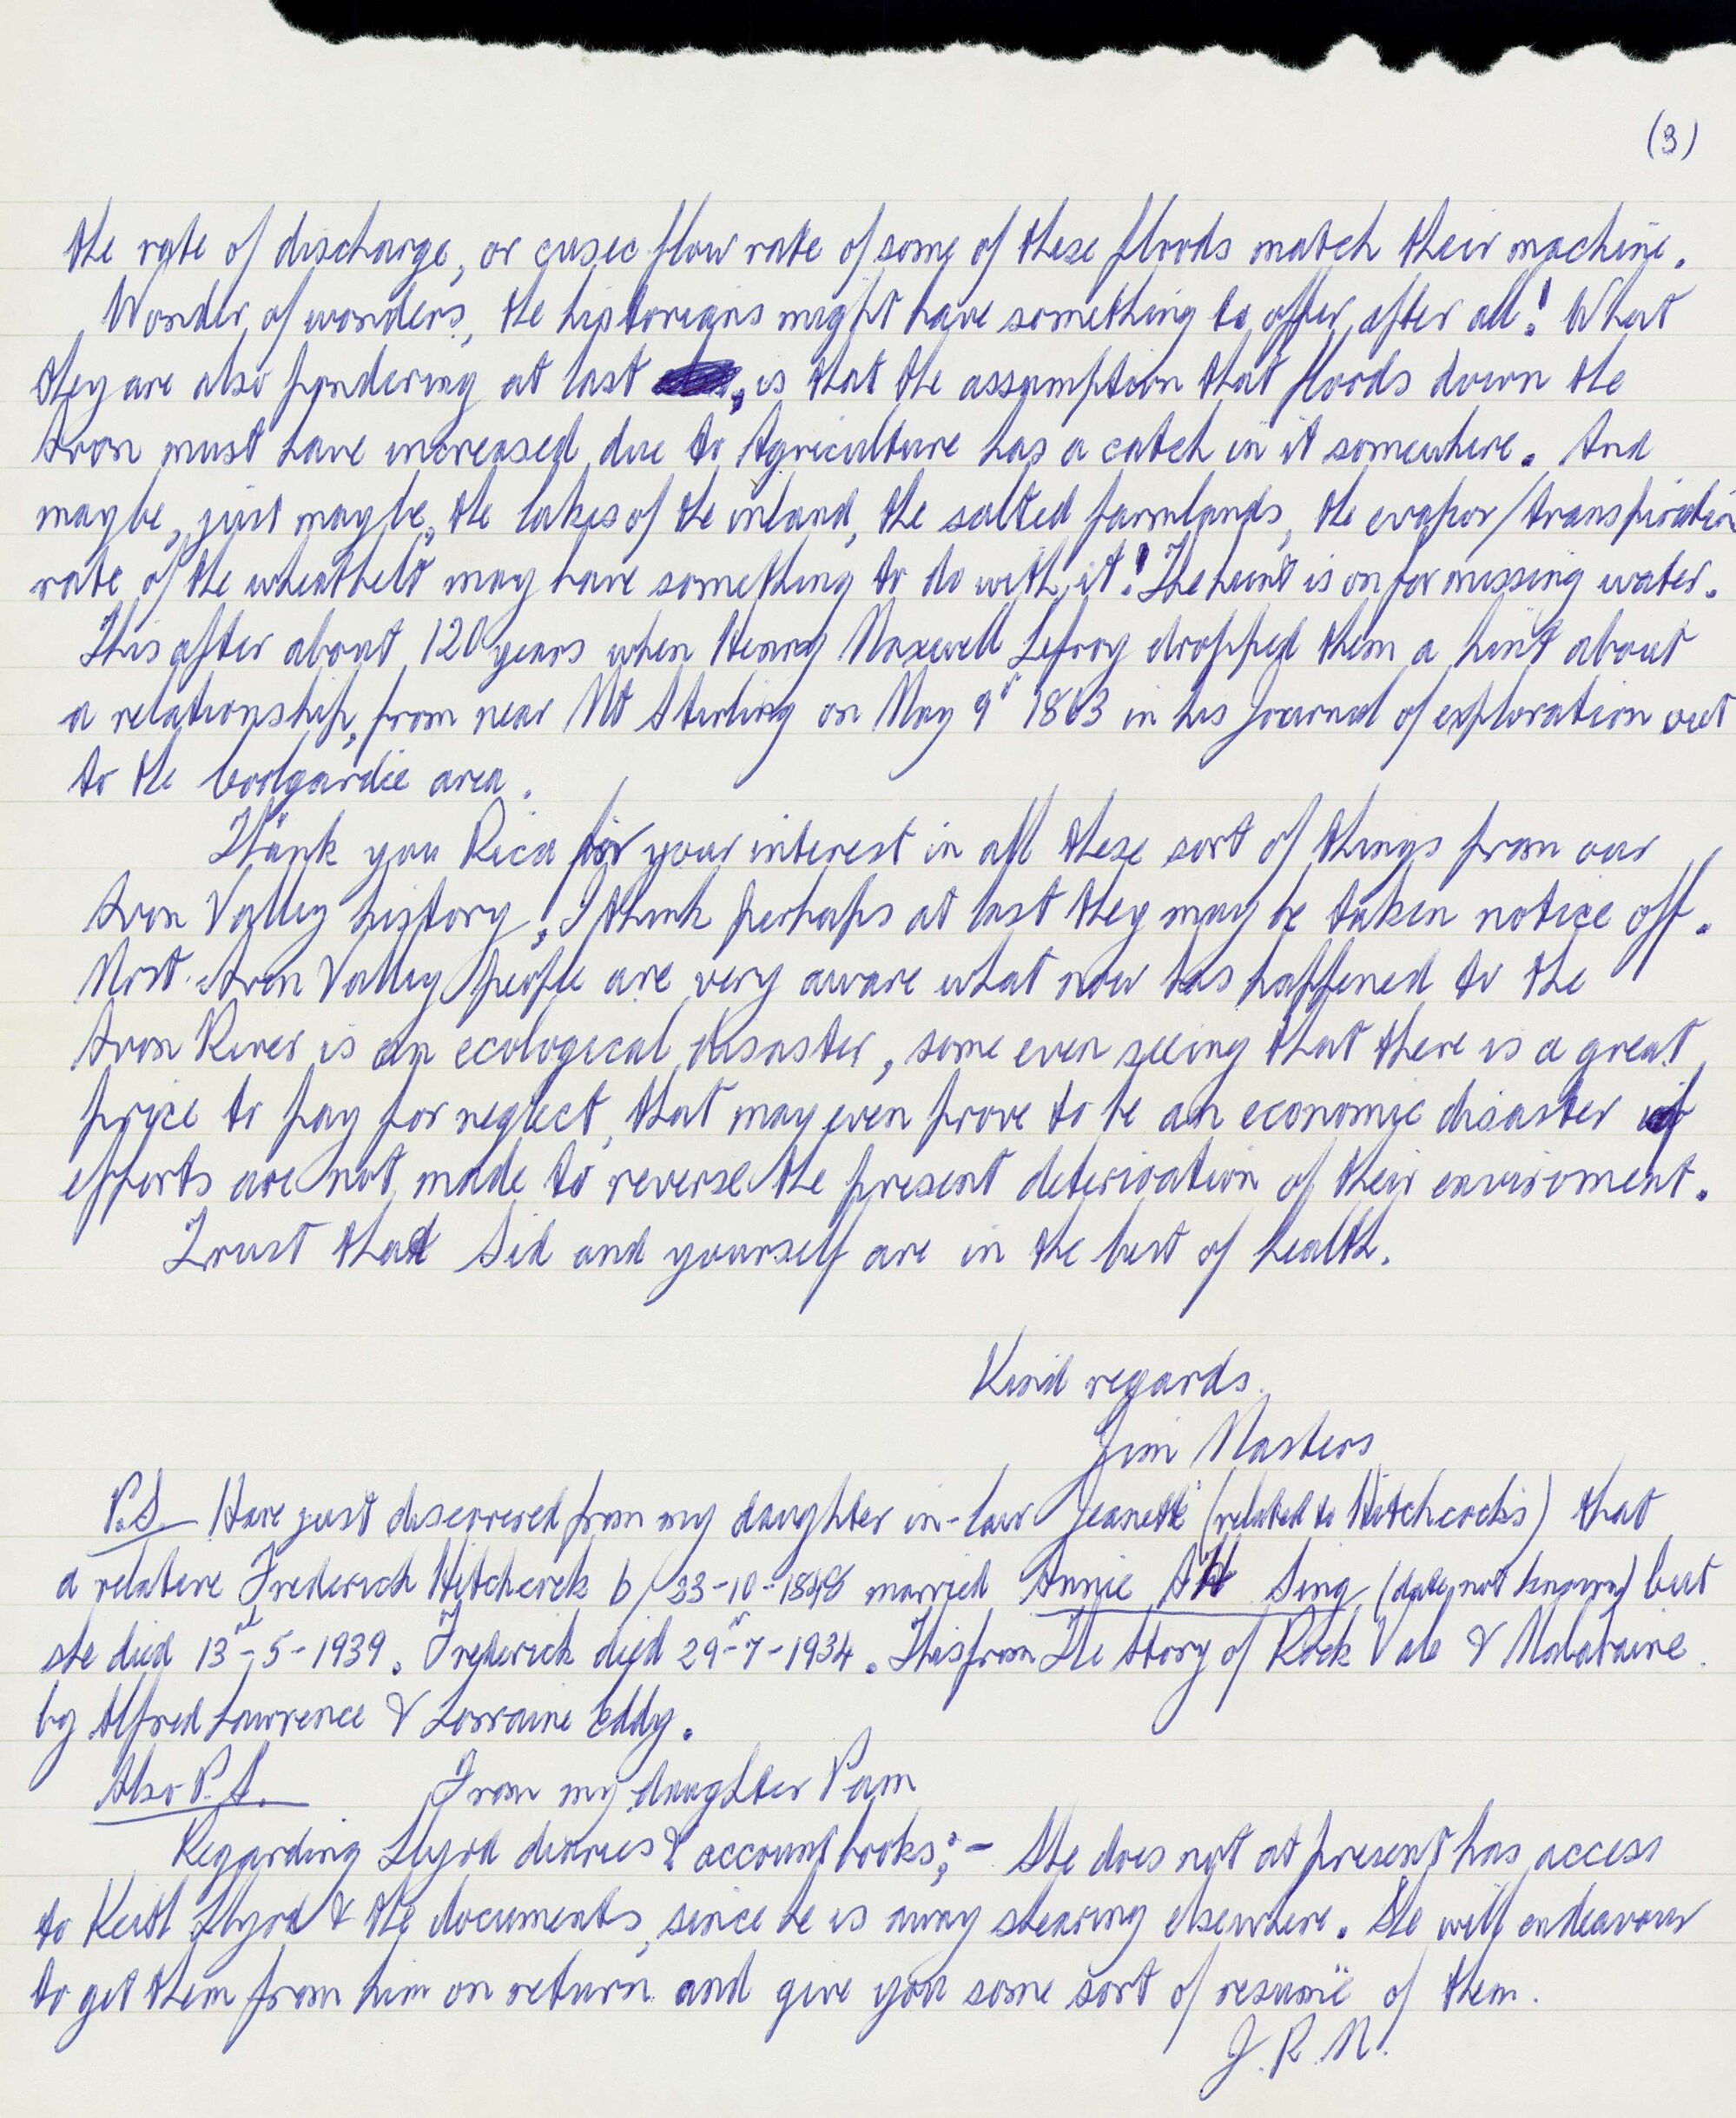 (3)
the rate of discharge, or cusec flow rate of some of these floods match their machine.
Wonder of wonders, the historians might have something to offer after all! What
they are also pondering at last, is that the assumption that floods down the
Avon must have increased due to Agriculture has a catch in it somewhere. And
maybe, just maybe, the lakes of the inland, the salted farmlands, the evapor/transpiration
rate of the wheatbelt may have something to do with it! The hunt is on for missing water.
This after about 120 years when Henry Maxwell Lefroy dropped them a hint about
a relationship, from near Mt Stirling on May 9th 1863 in his Journal of exploration out
to the Coolgardie area.
Thank you Rica for your interest in all these sort of things from our
Avon Valley history, I think perhaps at last they may be taken notice off.
Most Avon Valley people are very aware what now has happened to the
Avon River is an ecological disaster, some even seeing that there is a great
price to pay for neglect, that may even prove to be an economic disaster if
efforts are not made to reverse the present deterioation of their enviroment.
Trust that Sid and yourself are in the best of health.
Kind regards.
Jim Masters
P.S. Have just discovered from my daughter in-law Jeanette (related to Hitchcocks) that
a relative Frederich Hitchcock b/ 23-10-1848 married Annie AH Sing (date not known) but
she died 13th-5-1939. Frederick died 29th-7-1934. This from The Story of Rock Vale & Malabaine.
by Alfred Lawrence & Lorraine Eddy.
Also P.S. From my daughter Pam
Regarding Llyod diaries & account books;- She does not at present has access
to Keith Llyod & the documents, since he is away shearing elsewhere. She will endeavour
to get them from him on return and give you some sort of resumë of them.
J.R.M.